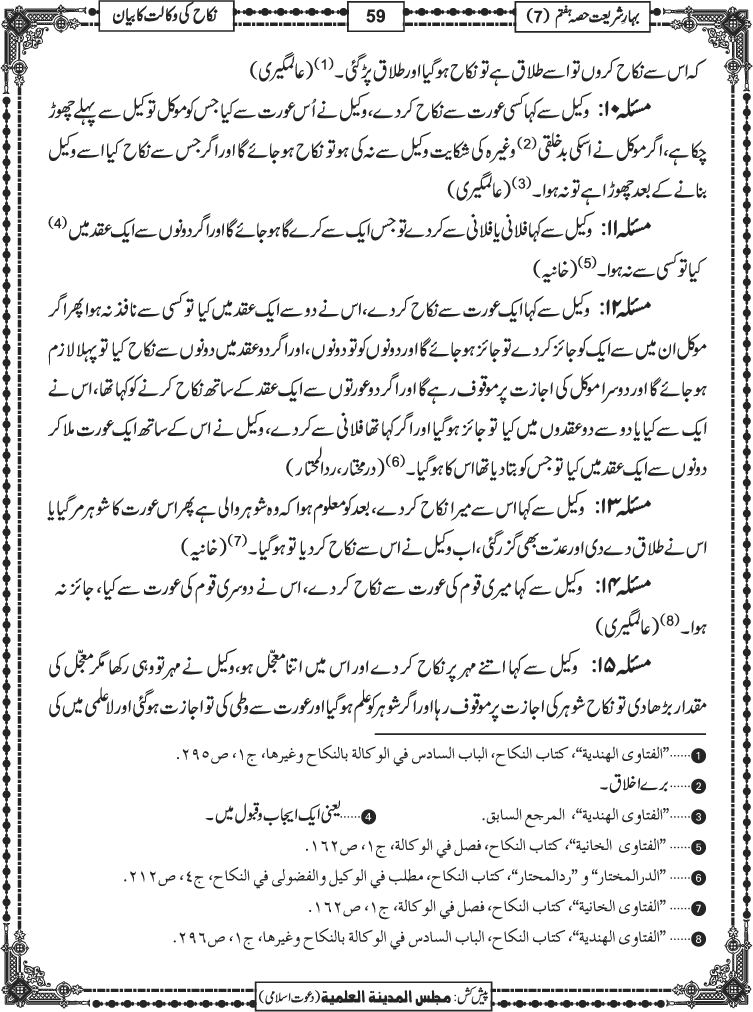 بہارِ شریعت حصہ ہفتم (7)
59
نکاح کی وکالت کا بیان
کہ اس سے نکاح کروں تو اسے طلاق ہے تو نکاح ہوگیا اور طلاق پڑ گئی۔(1) (عالمگیری)
مسئلہ ۱۰: وکیل سے کہا کسی عورت سے نکاح کردے، وکیل نے اُس عورت سے کیا جس کو موکل توکیل سے پہلے چھوڑ
چکا ہے، اگر موکل نے اسکی بدخلقی(2) وغیرہ کی شکایت وکیل سے نہ کی ہو تو نکاح ہو جائے گا اور اگر جس سے نکاح کیا اسے وکیل
بنانے کے بعد چھوڑا ہے تو نہ ہوا۔(3) (عالمگیری)
مسئلہ ۱۱: وکیل سے کہا فلانی یا فلانی سے کردے تو جس ایک سے کرے گا ہو جائے گا اور اگر دونوں سے ایک عقد میں(4)
کیا تو کسی سے نہ ہوا۔(5) (خانیہ)
مسئلہ ۱۲: وکیل سے کہا ایک عورت سے نکاح کردے، اس نے دو سے ایک عقد میں کیا تو کسی سے نافذ نہ ہوا پھر اگر
موکل ان میں سے ایک کو جائز کردے تو جائز ہو جائے گا اور دونوں کو تو دونوں، اور اگر دو عقد میں دونوں سے نکاح کیا تو پہلا لازم
ہو جائے گا اور دوسرا موکل کی اجازت پر موقوف رہے گا اور اگر دو عورتوں سے ایک عقد کے ساتھ نکاح کرنے کو کہا تھا، اس نے
ایک سے کیا یا دو سے دو عقدوں میں کیا تو جائز ہوگیا اور اگر کہا تھا فلانی سے کردے، وکیل نے اس کے ساتھ ایک عورت ملا کر
دونوں سے ایک عقد میں کیا تو جس کو بتا دیا تھا اس کا ہوگیا۔(6) (درمختار، ردالمحتار)
مسئلہ ۱۳: وکیل سے کہا اس سے میرا نکاح کردے، بعد کو معلوم ہوا کہ وہ شوہر والی ہے پھر اس عورت کا شوہر مرگیا یا
اس نے طلاق دے دی اور عدّت بھی گزر گئی، اب وکیل نے اس سے نکاح کردیا تو ہوگیا۔(7) (خانیہ)
مسئلہ ۱۴: وکیل سے کہا میری قوم کی عورت سے نکاح کردے، اس نے دوسری قوم کی عورت سے کیا، جائز نہ
ہوا۔(8) (عالمگیری)
مسئلہ ۱۵: وکیل سے کہا اتنے مہر پر نکاح کردے اور اس میں اتنا معجّل ہو، وکیل نے مہر تو وہی رکھا مگر معجّل کی
مقدار بڑھا دی تو نکاح شوہر کی اجازت پر موقوف رہا اور اگر شوہر کو علم ہوگیا اور عورت سے وطی کی تو اجازت ہوگئی اور لاعلمی میں کی
1 ......"الفتاوى الهندية"، كتاب النكاح، الباب السادس في الوكالة بالنكاح وغيرها، ج۱، ص۲۹۵.
2 ......برے اخلاق۔
3 ......"الفتاوى الهندية"، المرجع السابق.
4 ......یعنی ایک ایجاب وقبول میں۔
5 ......"الفتاوى الخانية"، كتاب النكاح، فصل في الوكالة، ج۱، ص۱٦۲.
6 ......"الدرالمختار" و "ردالمحتار"، كتاب النكاح، مطلب في الوكيل والفضولى في النكاح، ج٤، ص۲۱۲.
7 ......"الفتاوى الخانية"، كتاب النكاح، فصل في الوكالة، ج۱، ص۱٦۲.
8 ......"الفتاوى الهندية"، كتاب النكاح، الباب السادس في الوكالة بالنكاح وغيرها، ج۱، ص۲۹٦.
پیش کش: مجلس المدينة العلمية (دعوت اسلامی)